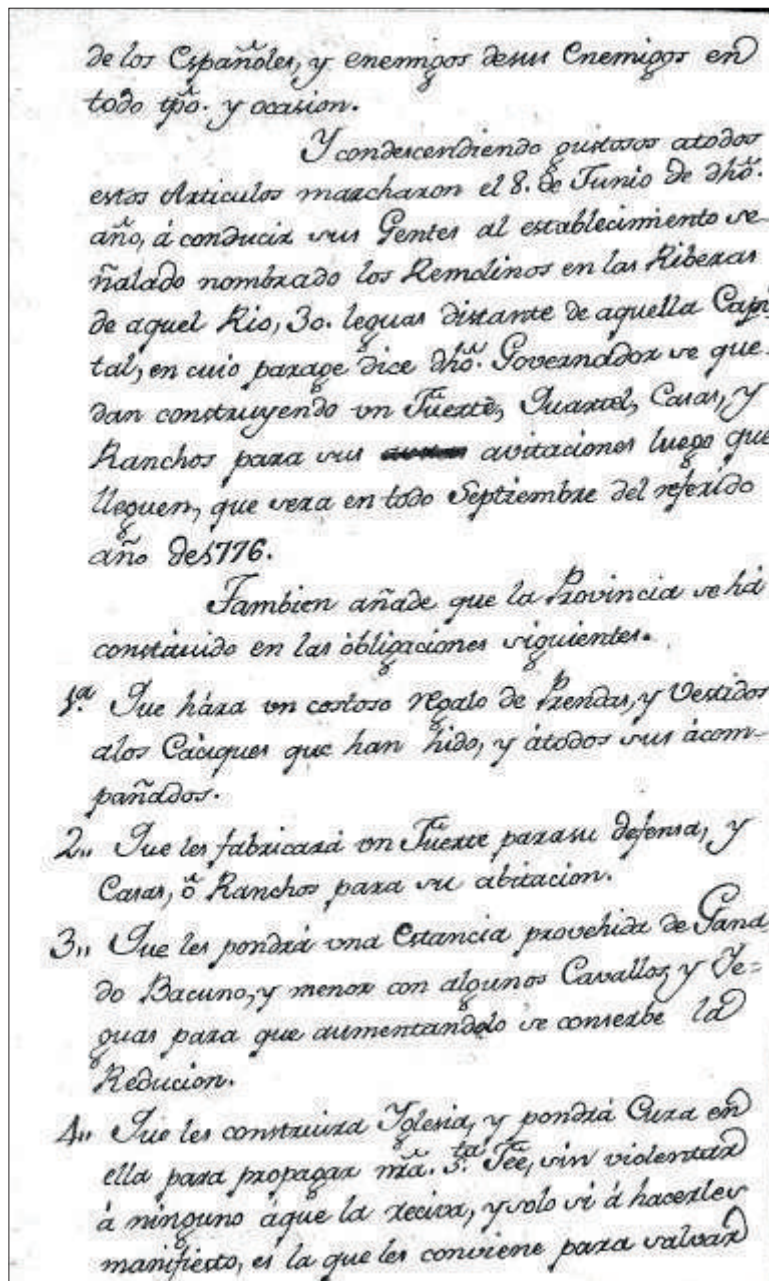 de los Españoles, y enemigos desus Enemigos en
todo tpõ. y ocasion.
Y condescendiendo gustosos atodos
estos Articulos marcharon el 8. de Junio de dhõ.
año, á conducir sus Gentes al establecimiento se-
ñalado nombrado los Remolinos en las Riberas
de aquel Rio, 30. leguas distante de aquella Capi
tal, en cuio parage dice dhõ. Governador se que-
dan construyendo vn Fuerte, Quartel, Casas, y
Ranchos para sus avitaciones luego que
lleguen, que sera en todo Septiembre del referido
año de 1776.
Tambien añade que la Provincia se há
constituido en las óbligaciones siguientes.
1.a Que hára vn costoso regalo de Prendas, y Vestidos
alos Cáciques que han hido, y átodos sus ácom-
pañados.
2,, Que les fabricará vn Fuerte parasu defensa, y
Casas, ó Ranchos para su abitacion.
3,, Que les pondrá vna Estancia provehida de Gana
do Bacuno, y menor con algunos Cavallos, y Ye-
guas para que aumentandolo se conserbe la
Reducion.
4,, Que les construira Yglesia, y pondrá Cura en
ella para propagar nrã. S.ta Fee, sin violentar
á ninguno áque la reciva, y solo si á hacerles
manifiesto, es la que les conviene para salvar